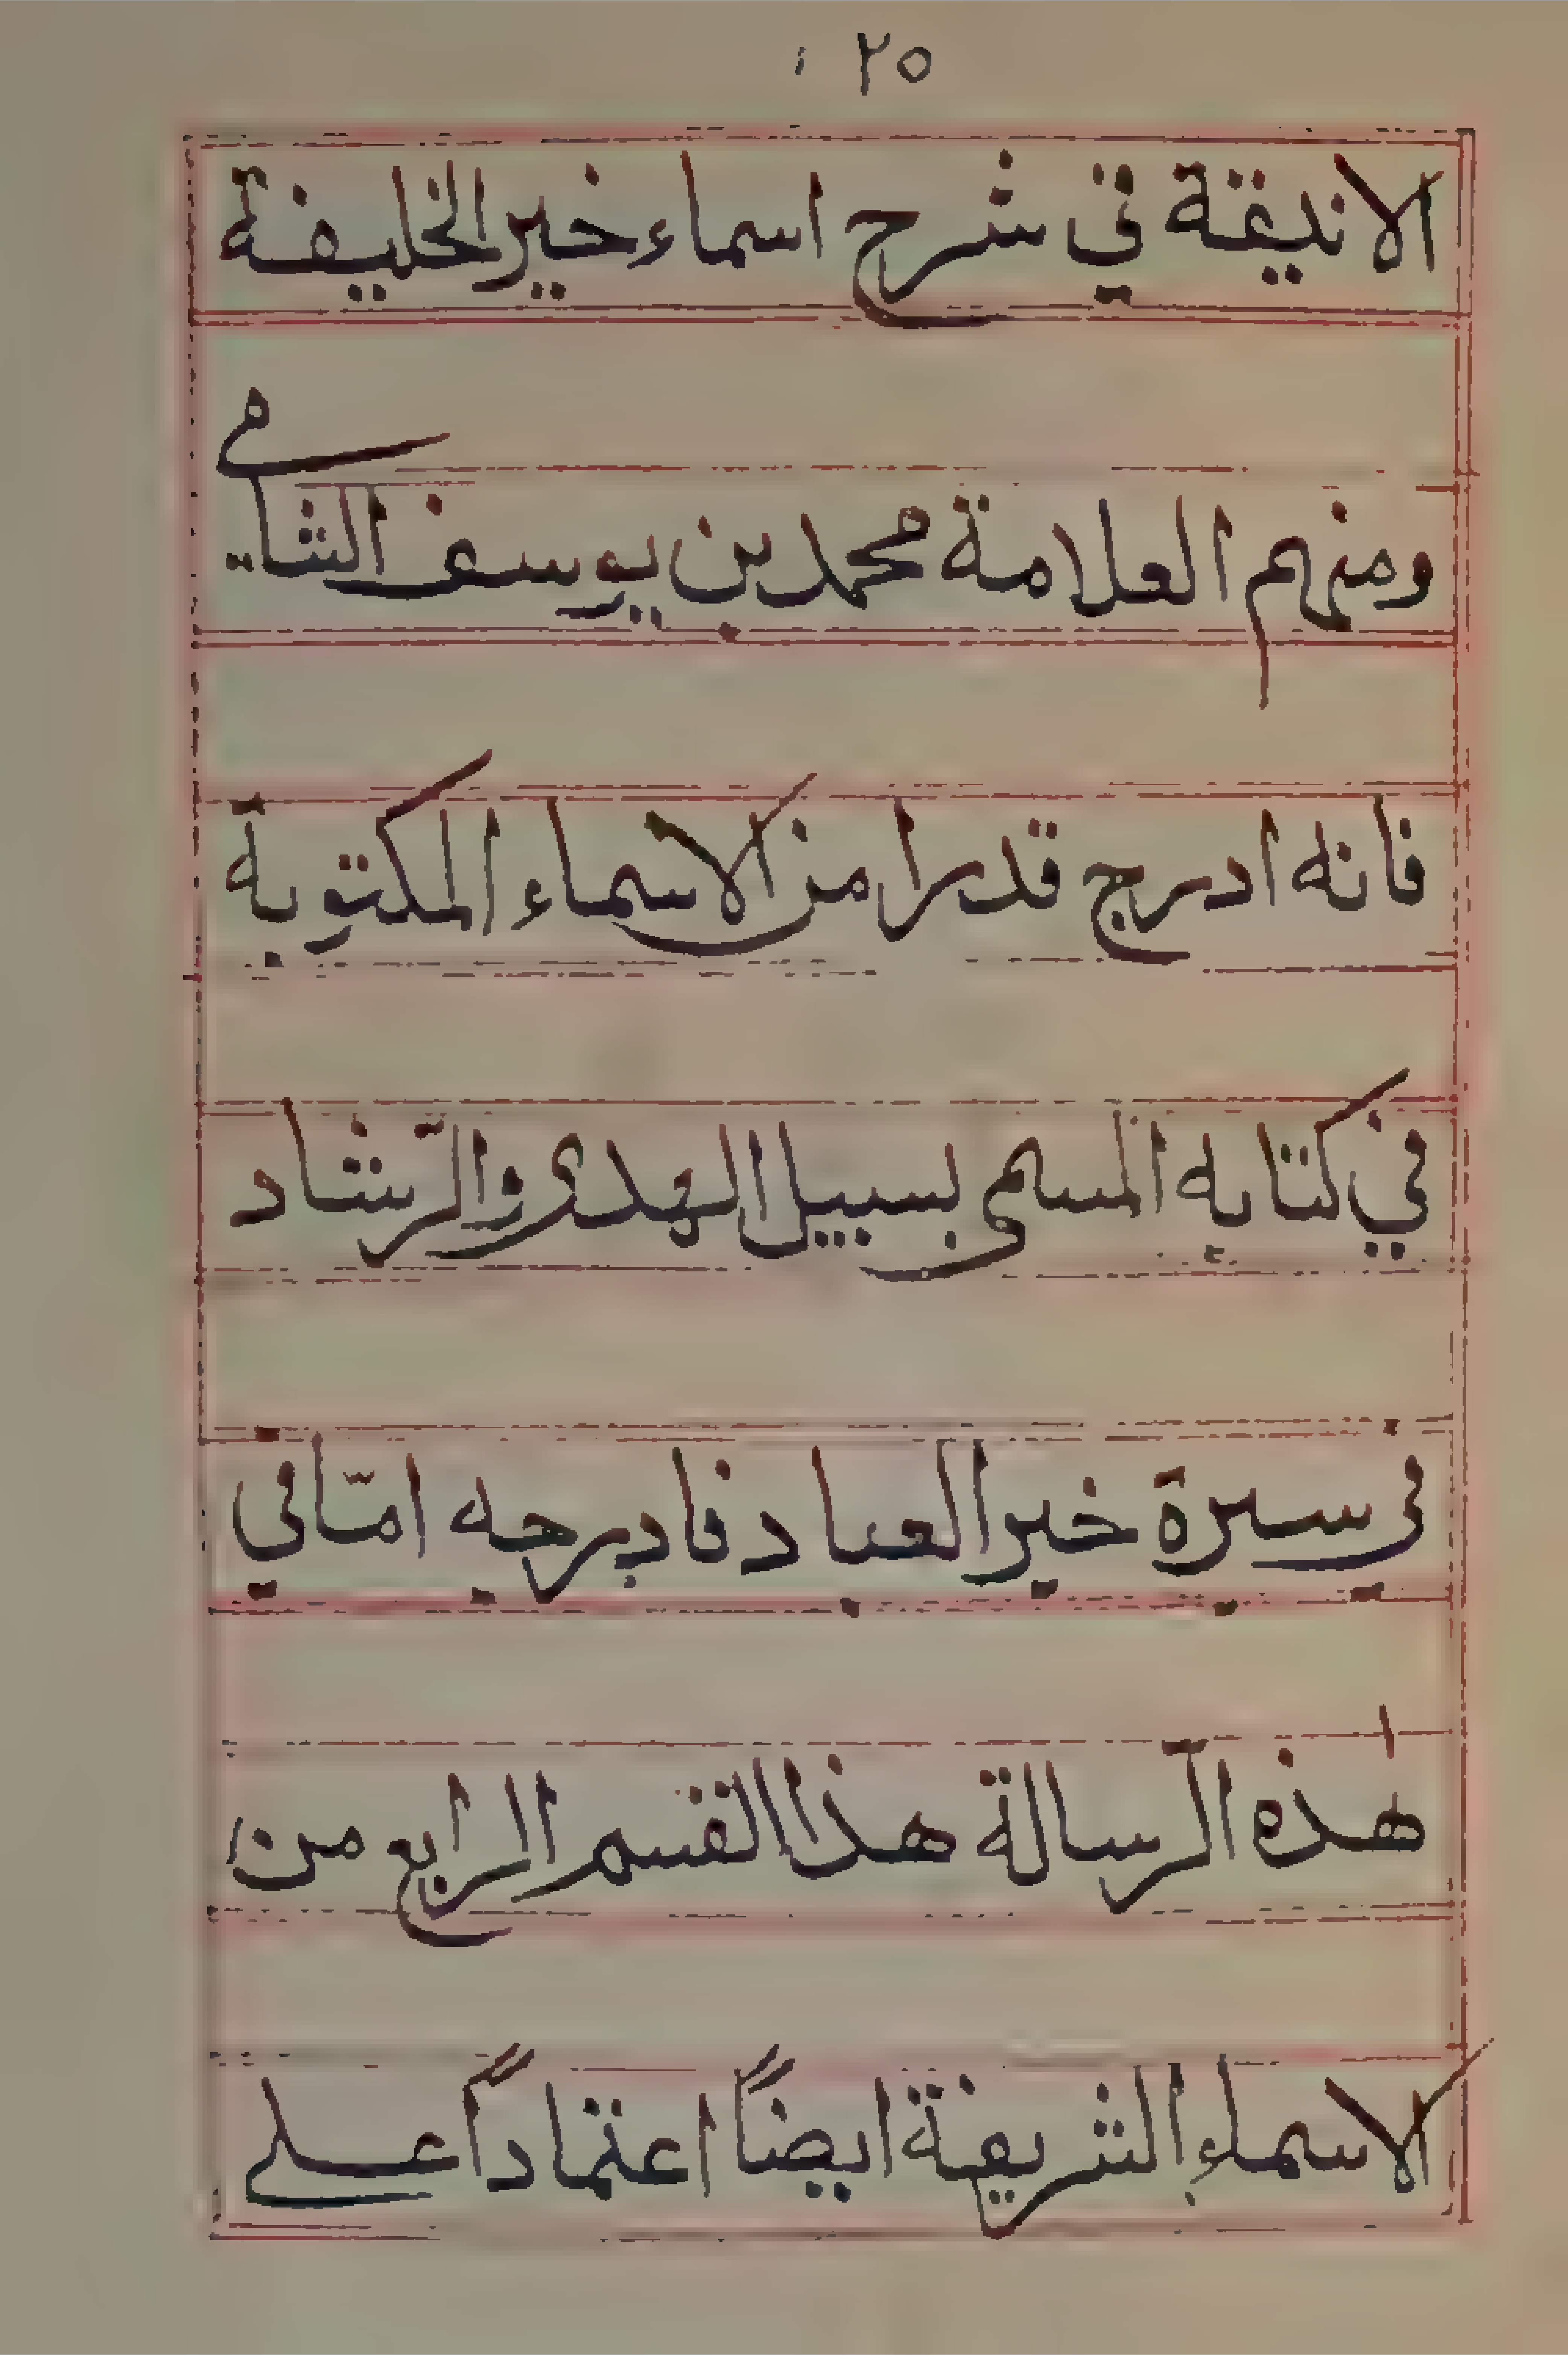 ٢٥
الانيقة في شرح اسماء خير الخليفة
ومنهم العلامة محمد بن يوسف الشامي
فانه ادرج قدرا من الاسماء المكتوبة
في كتابه المسمى بسبيل الهدى والرّشاد
في سيرة خير العباد فادرجه امّا في
هذه الرّسالة هذا القسم الرابع من
الاسماء الشريفة ايضاً اعتماداً على